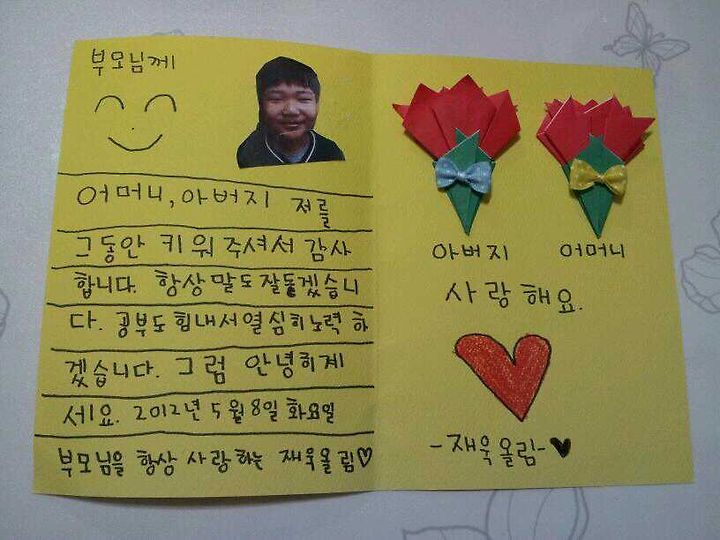 부모님께
어머니, 아버지 저를
그동안 키워주셔서 감사
합니다. 항상 말도 잘듣겠습니
다. 공부도 힘내서 열심히 노력 하
겠습니다. 그럼 안녕히계
세요. 2012년 5월 8일 화요일
부모님을 항상 사랑하는 재욱올림♡
아버지 어머니
사랑해요.
-재욱올림-♥